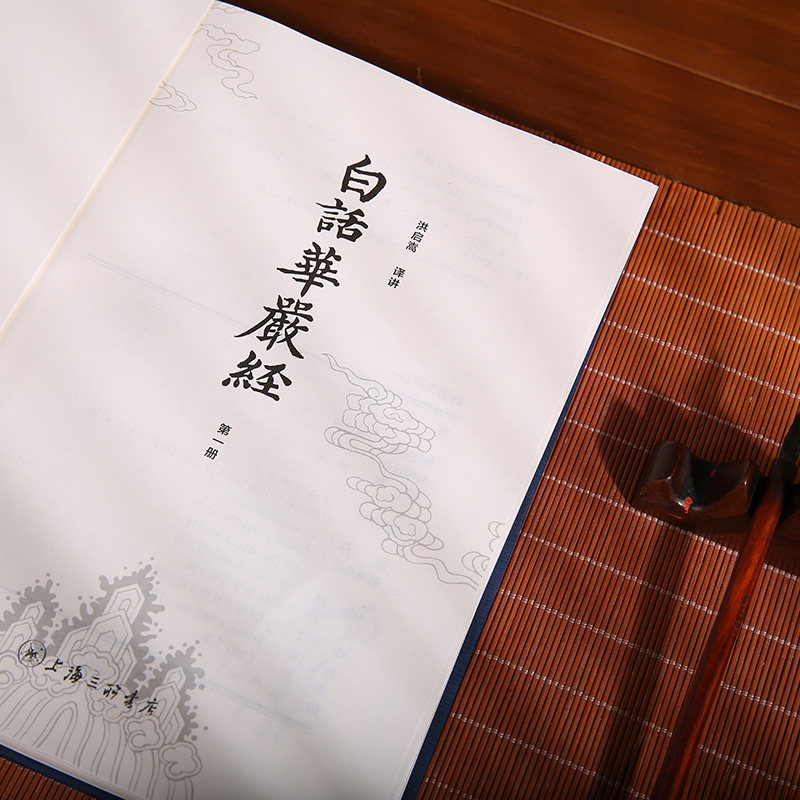 白話華嚴経
洪启嵩 译讲
第一册
上海三联书店